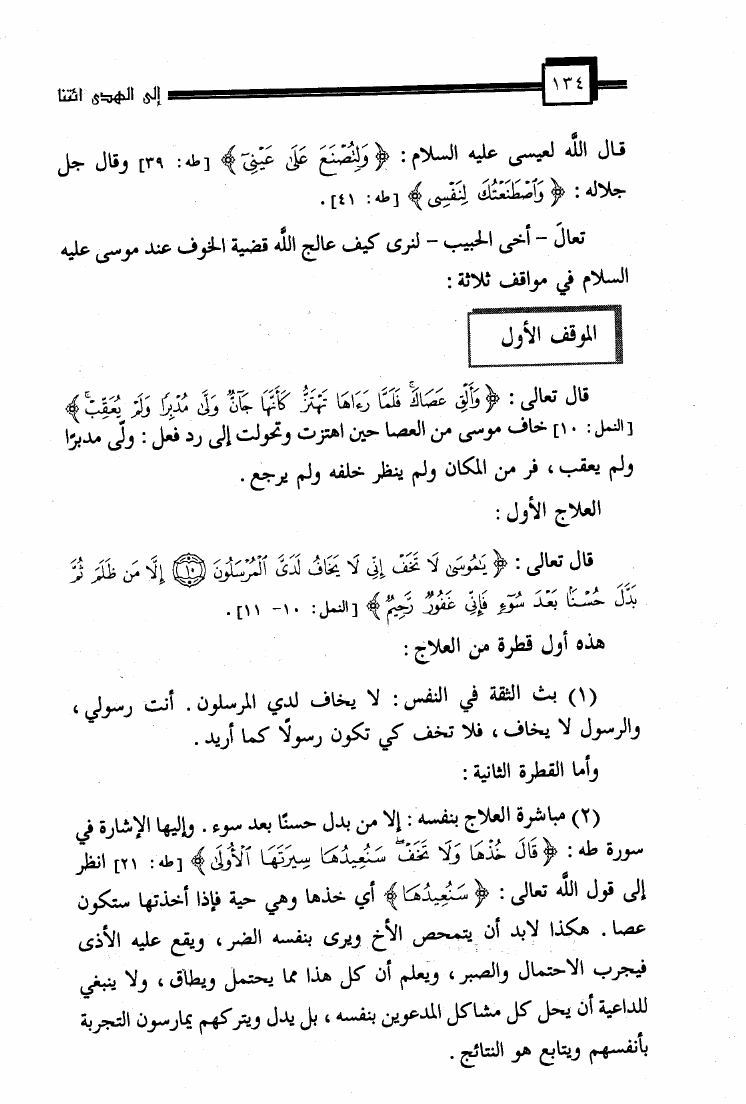 ١٣٤
إلى الهدى ائتنا
قال الله لعيسى عليه السلام : ﴿ وَلِتُصْنَعَ عَلَىٰ عَيْنِىٓ ﴾ [طه: ٣٩] وقال جل
جلاله : ﴿ وَٱصْطَنَعْتُكَ لِنَفْسِى ﴾ [طه: ٤١] .
تعالَ – أخى الحبيب – لنرى كيف عالج الله قضية الخوف عند موسى عليه
السلام في مواقف ثلاثة :
الموقف الأول
قال تعالى : ﴿ وَأَلْقِ عَصَاكَ ۚ فَلَمَّا رَءَاهَا تَهْتَزُّ كَأَنَّهَا جَآنٌّ وَلَّىٰ مُدْبِرًا وَلَمْ يُعَقِّبْ ۚ ﴾
[النمل: ١٠] خاف موسى من العصا حين اهتزت وتحولت إلى رد فعل : ولّى مدبرًا
ولم يعقب ، فر من المكان ولم ينظر خلفه ولم يرجع .
العلاج الأول :
قال تعالى : ﴿ يَٰمُوسَىٰ لَا تَخَفْ إِنِّى لَا يَخَافُ لَدَىَّ ٱلْمُرْسَلُونَ ۝١٠ إِلَّا مَن ظَلَمَ ثُمَّ
بَدَّلَ حُسْنًۢا بَعْدَ سُوٓءٍ فَإِنِّى غَفُورٌ رَّحِيمٌ ﴾ [النمل: ١٠- ١١] .
هذه أول قطرة من العلاج :
(١) بث الثقة في النفس : لا يخاف لدي المرسلون . أنت رسولي ،
والرسول لا يخاف ، فلا تخف كي تكون رسولًا كما أريد .
وأما القطرة الثانية :
(٢) مباشرة العلاج بنفسه : إلا من بدل حسنًا بعد سوء . وإليها الإشارة في
سورة طه : ﴿ قَالَ خُذْهَا وَلَا تَخَفْ ۖ سَنُعِيدُهَا سِيرَتَهَا ٱلْأُولَىٰ ﴾ [طه: ٢١] انظر
إلى قول الله تعالى : ﴿ سَنُعِيدُهَا ﴾ أي خذها وهي حية فإذا أخذتها ستكون
عصا . هكذا لابد أن يتمحص الأخ ويرى بنفسه الضر ، ويقع عليه الأذى
فيجرب الاحتمال والصبر ، ويعلم أن كل هذا مما يحتمل ويطاق ، ولا ينبغي
للداعية أن يحل كل مشاكل المدعوين بنفسه ، بل يدل ويتركهم يمارسون التجربة
بأنفسهم ويتابع هو النتائج .